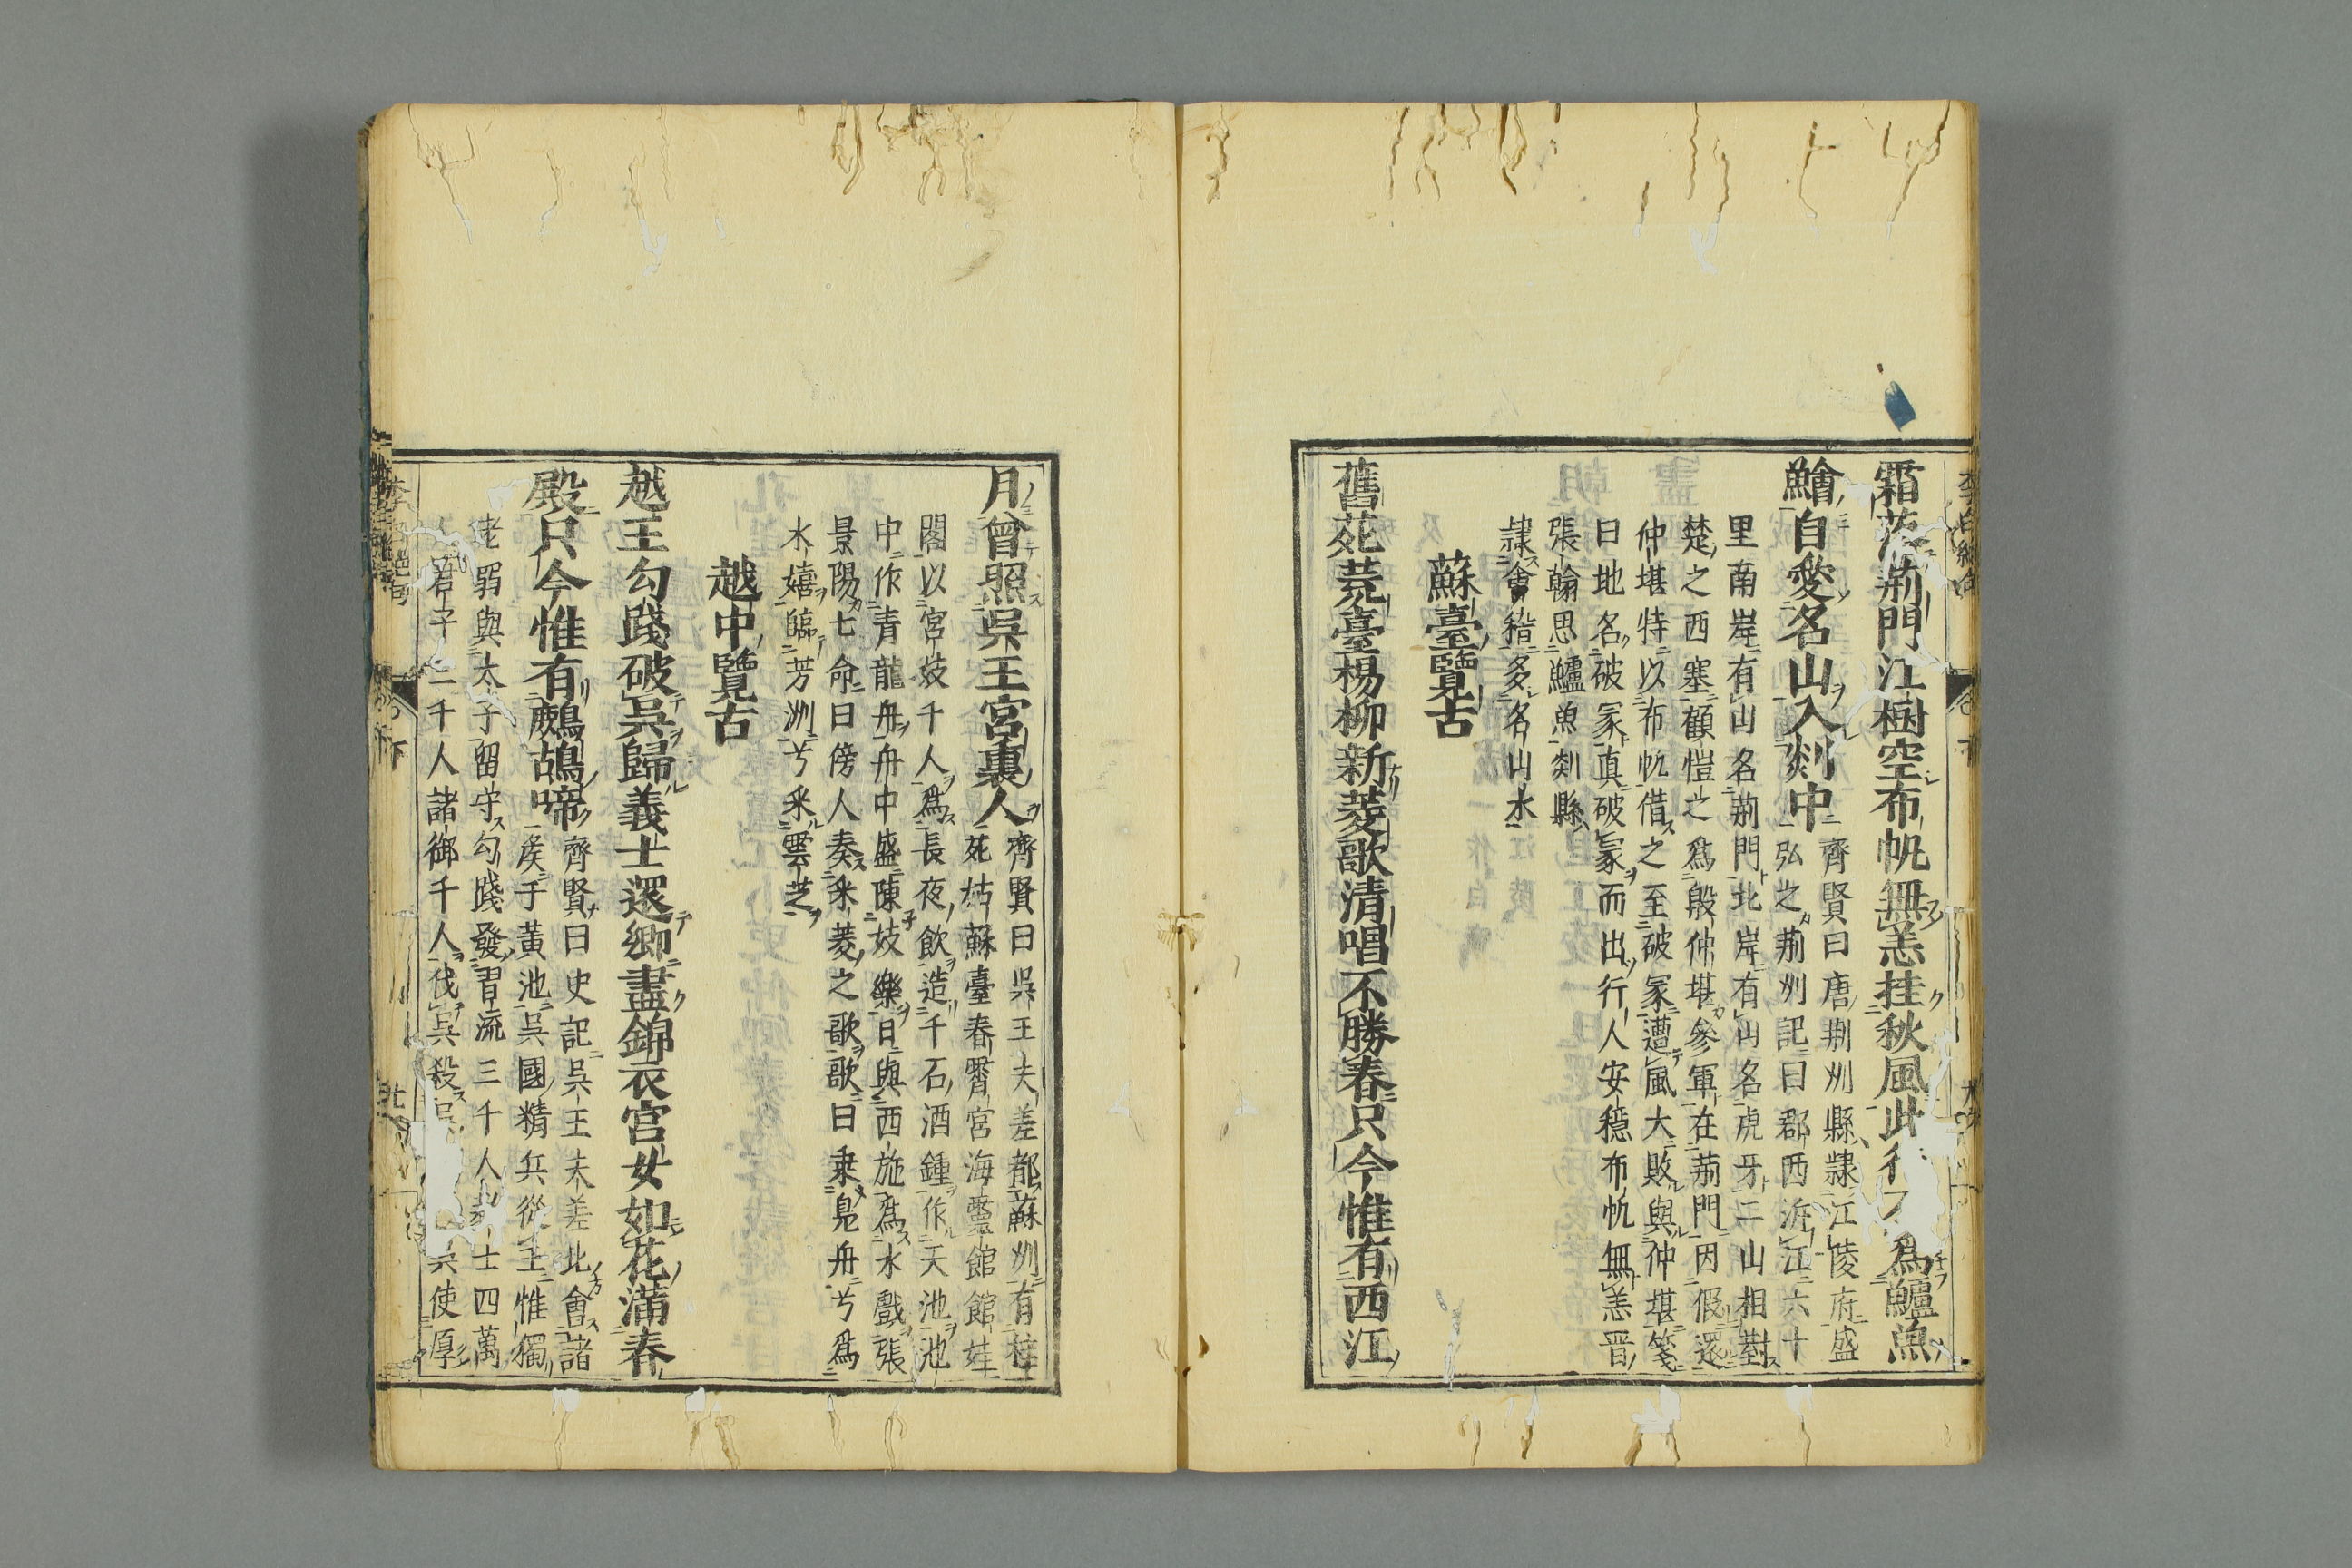 霜落荊門江樹空布帆無恙挂秋風此行不為鱸魚
鱠自愛名山入剡中
齊賢曰唐荊州縣隸江陵府盛
弘之荊州記曰郡西泝江六十
里南岸有山名荊門北岸有山名虎牙二山相對
楚之西塞顧愷之為殷仲堪參軍在荊門因假還
仲堪特以布帆借之至破冢遭風大敗與仲堪箋
曰地名破冢真破冢而出行人安穩布帆無恙晉
張翰思鱸魚剡縣
隷會稽多名山水
蘇臺覽古
舊苑荒臺楊柳新菱歌清唱不勝春只今惟有西江
月曾照吳王宮裏人
齊賢曰吳王夫差都蘇州有桂
苑姑蘇臺春霄宮海靈館館娃
閣以宮妓千人為長夜飲造千石酒鍾作天池池
中作青龍舟舟中盛陳妓樂日與西施為水戲張
景陽七命曰傍人奏采菱之歌歌曰乗鳧舟兮為
水嬉臨芳洲兮采雲芝
越中覽古
越王勾踐破吳歸義士還鄉盡錦衣宮女如花滿春
殿只今惟有鷓鴣啼
齊賢曰史記吳王夫差北會諸
矦于黃池吳國精兵從王惟獨
老弱與太子留守勾踐發習流三千人士四萬
君子二千人諸御千人伐吳殺吳使厚